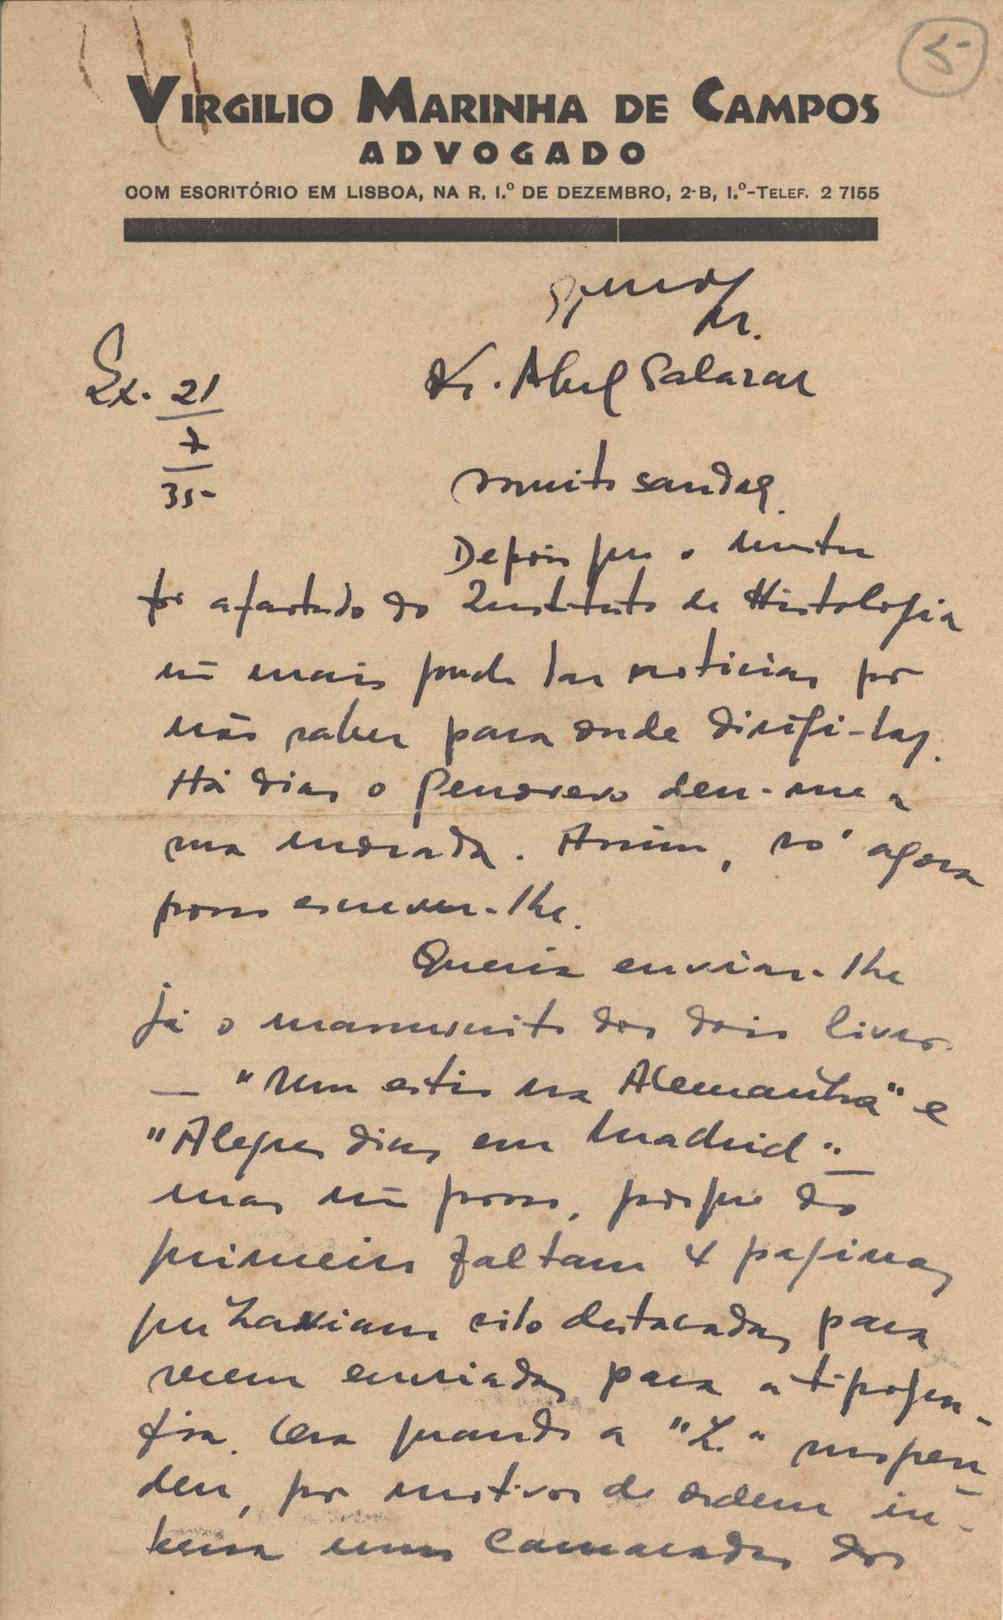 5-
VIRGILIO MARINHA DE CAMPOS
ADVOGADO
COM ESCRITÓRIO EM LISBOA, NA R. 1.º DE DEZEMBRO, 2-B, 1.º-TELEF. 2 7155
Sr.
Lx. 21
7
35-
Dr. Abel Salazar
muito saudoso
Depois que o
foi afastado do Instituto de Histologia
nũ mais pude dar noticias por
não saber para onde dirigi-las.
Há dias o Genoveva deu-me a
sua morada. Assim, só agora
posso escrever-lhe.
Queria enviar-lhe
já o manuscrito dos dois livros
— "Um estio na Alemanha" e
"Alegres dias em Madrid" —
mas nũ posso, porque do
primeiro faltam 4 paginas
que haviam sido destacadas para
serem enviadas para a tipogra-
fia. Era quando a "L." suspen-
deu, por motivos de ordem in-
terna uns camaradas dos